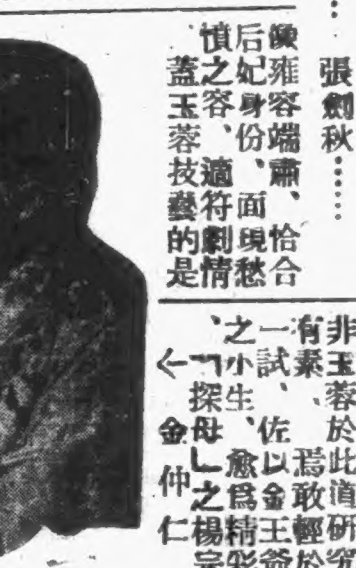 ……張劍秋……
雍容端肅、恰合
后妃身份、面現愁
憤之容、適符劇情
蓋玉蓉技藝的是
非玉蓉於此道研究
有素、焉敢輕於
一試、佐以金王爺
之小生、愈爲精彩
、「探母」之楊宗
金仲仁